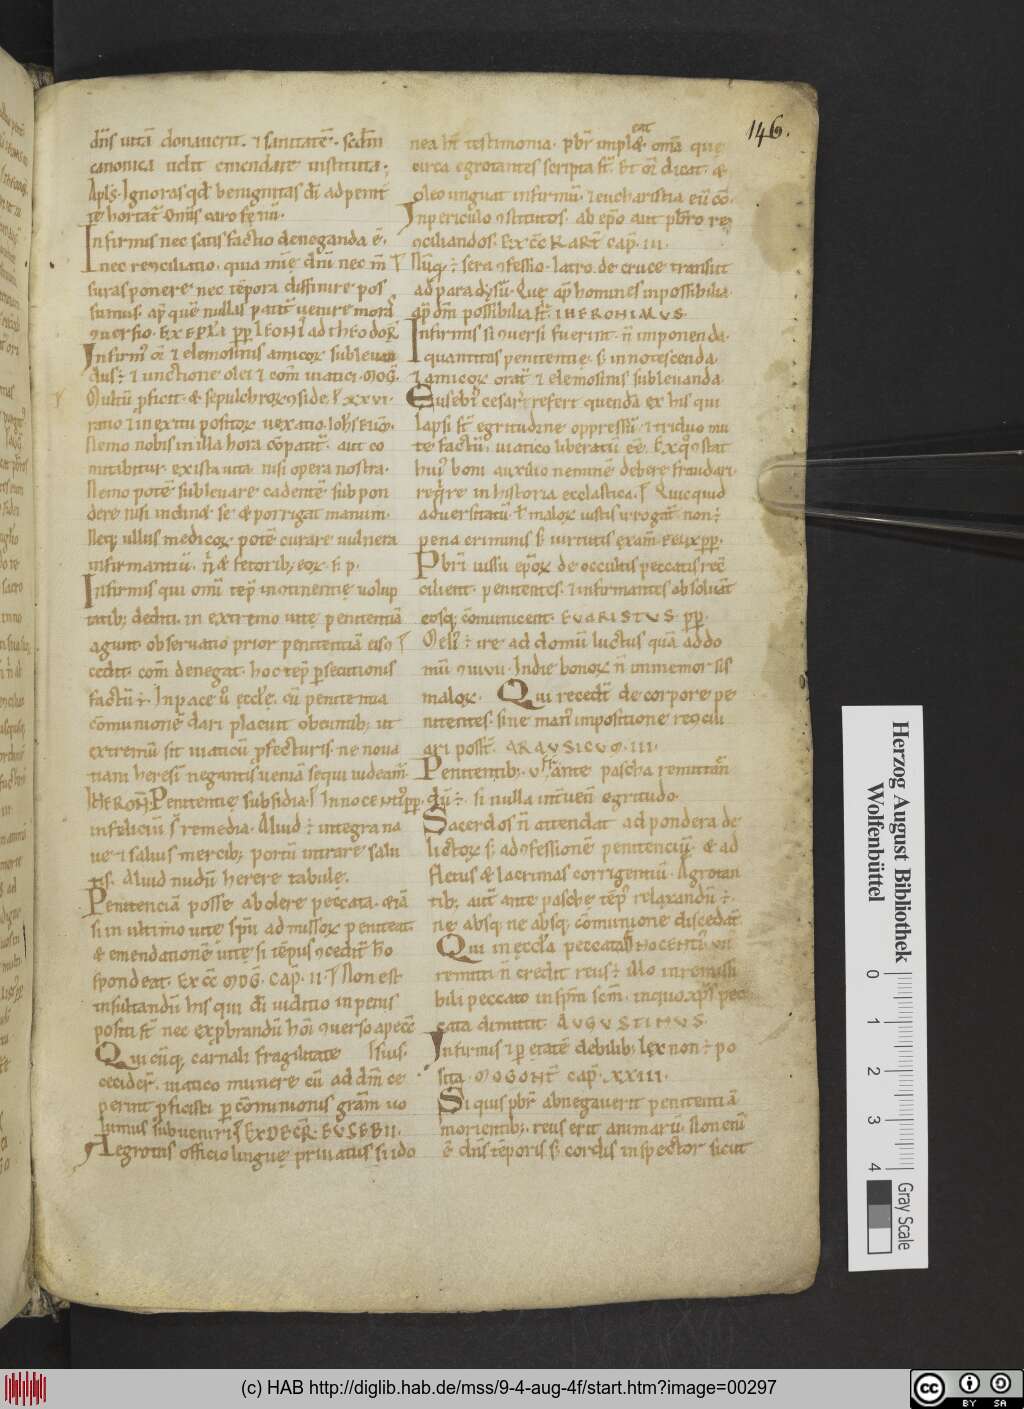 146.
dn̄s uitā donauerit. ⁊ sanitatē. scdm̄
canonica uelit emendare instituta.
Apl̄s. Ignoras qd̄ benignitas dī ad penit
te hortat̄. Om̄is caro fenū.
Infirmis nec satisfactio deneganda ē.
nec recc̄iliatio. quia mīe dn̄i nec m̄
suras ponere nec tēpora diffinire pos
sumus. ap̄ quē nullā patit̄ uenire moras
Infirmꝰ or̄ ⁊ elemosinis amicoꝝ subleuan
dus. ⁊ unctione olei ⁊ com̄ uiatici. MOG̅.
Multū ꝓficit.
Nemo nobis in illa hora cōpatit̄. aut co
mitibitur. ex ista uita. nisi opera nostra.
Nemo potē subleuare cadentē. sub pon
dere nisi inclinat se & porrigat manum.
Neqꝫ ullus medicoꝝ potē curare uulnera
infirmantiū.
Infirmis qui om̄i tēp̄ incontinentię uolup
tatibꝫ dediti. in extremo uite penitentiā
agunt. obseruatio prior penitentiā eis
cedit. com̄ denegat. hoc tēp̄ ꝑsecutionis
factū. In pace ū ęccłe. cū penitentia
cōmunionē dari placuit obeuntibꝫ ut
extremū sit uiaticū ꝓfecturis. ne noua
tiani heresī negantis ueniā sequi uideam̄.
IHERON̄. Penitentię subsidia
infeliciū st̄ remedia. Aliud integra na
ue ⁊ saluis mercibꝫ portū intrare salu
tis. Aliud nudū herere tabulę.
Penitenciā posse abolere peccata. etiā
si in ultimo uite spm̄ admissoꝝ peniteat.
& emendationē uitę si tēpus ꝯcedit h̄o
spondeat. Ex cc̄ MOG̅. cap̄. II. Non est
insultandū his qui dī iudicio in penis
positi st̄ nec exp̄brandū hōi ꝯuerso a pecc̄
Qui cūqꝫ carnali fragilitate
ceciderī. uiatico munere cū ad dm̄ ce
perint ꝓficisci ꝑ cōmunionis gram̄ uo
lumus subueniri. EX DECR̄. EUSEBII.
Aegrotus officio linguę priuatus si ido
nea ht̄ testimonia. pbr̄ impleat omā quę
circa egrotantes scripta st̄. Et or̄ dicat. &
oleo unguat infirmū. ⁊ eucharistia eū cō.
In periculo ꝯstitutos. ab ep̄o aut pbr̄o re
ꝯciliandos. EX CC̄ KART̄ cap̄. III.
Nūqꝫ sera ꝯfessio. latro de cruce transiit
ad paradysū. Que ap̄ homines inpossibilia.
ap̄ dm̄ possibilia st̄. IHERONIMUS.
Infirmis si ꝯuersi fuerint. n̄ imponenda.
quantitas penitentię. s; innotescenda.
⁊ amicoꝝ orat̄ ⁊ elemosinis subleuanda.
Eusebī cesar̄ refert quendā ex his qui
lapsi st̄ egritudine oppressū. ⁊ triduo mu
te factū. uiatico liberatū eē. Ex qꝰ ꝯstat
huīꝰ boni auxilio neminē debere fraudari
req̄re in historia ecclastica. Quicquid
aduersitatū ł maloꝝ iustis irrogat̄. non
pena criminis s; uirtutis exam̄. FELIX PP̄.
Pbr̄i iussu ep̄oꝝ de occultis peccatis recc̄
cilient. penitentes. ⁊ infirmantes absoluāt
eosqꝫ cōmunicent. EUARISTUS. PP̄.
Meli ire ad domū luctus quā ad do
mū ꝯuiuii. In die bonoꝝ n̄ inmemor sis
maloꝝ. Qui recedīt de corpore pe
nitentes. sine manꝰ impositione reꝯcili
ari possīt. ARAUSICUM. III.
Penitentibꝫ. V. Fr̄ ante pascha remittān
dū. si nulla int̄uenī egritudo.
Sacerdos n̄ attendat ad pondera de
lictoꝝ s; ad ꝯfessionē penitenciū. & ad
fletus & lacrimas corrigentiū. Agrotan
tibꝫ aut̄ ante pasche tēp̄ relaxandū.
ne absqꝫ cōmunione discedāt.
Qui in ęccła peccata
remitti n̄ credit reus illo inremissi
bili peccato in spm̄ scm̄.
cata dimittit. AUGUSTINUS.
Infirmis ⁊ ꝑ etatē debilibꝫ lex non po
sita. MOGONT̄ cap̄. XXIII.
Si quis pbr̄ abnegauerit penitentiā
morientibꝫ. reus erit animarū. Non enī
ē dn̄s tēporis s; cordis inspector sicut
Herzog August Bibliothek
Wolfenbüttel
0 1 2 3 4
Gray Scale
(c) HAB http://diglib.hab.de/mss/9-4-aug-4f/start.htm?image=00297
cc BY SA